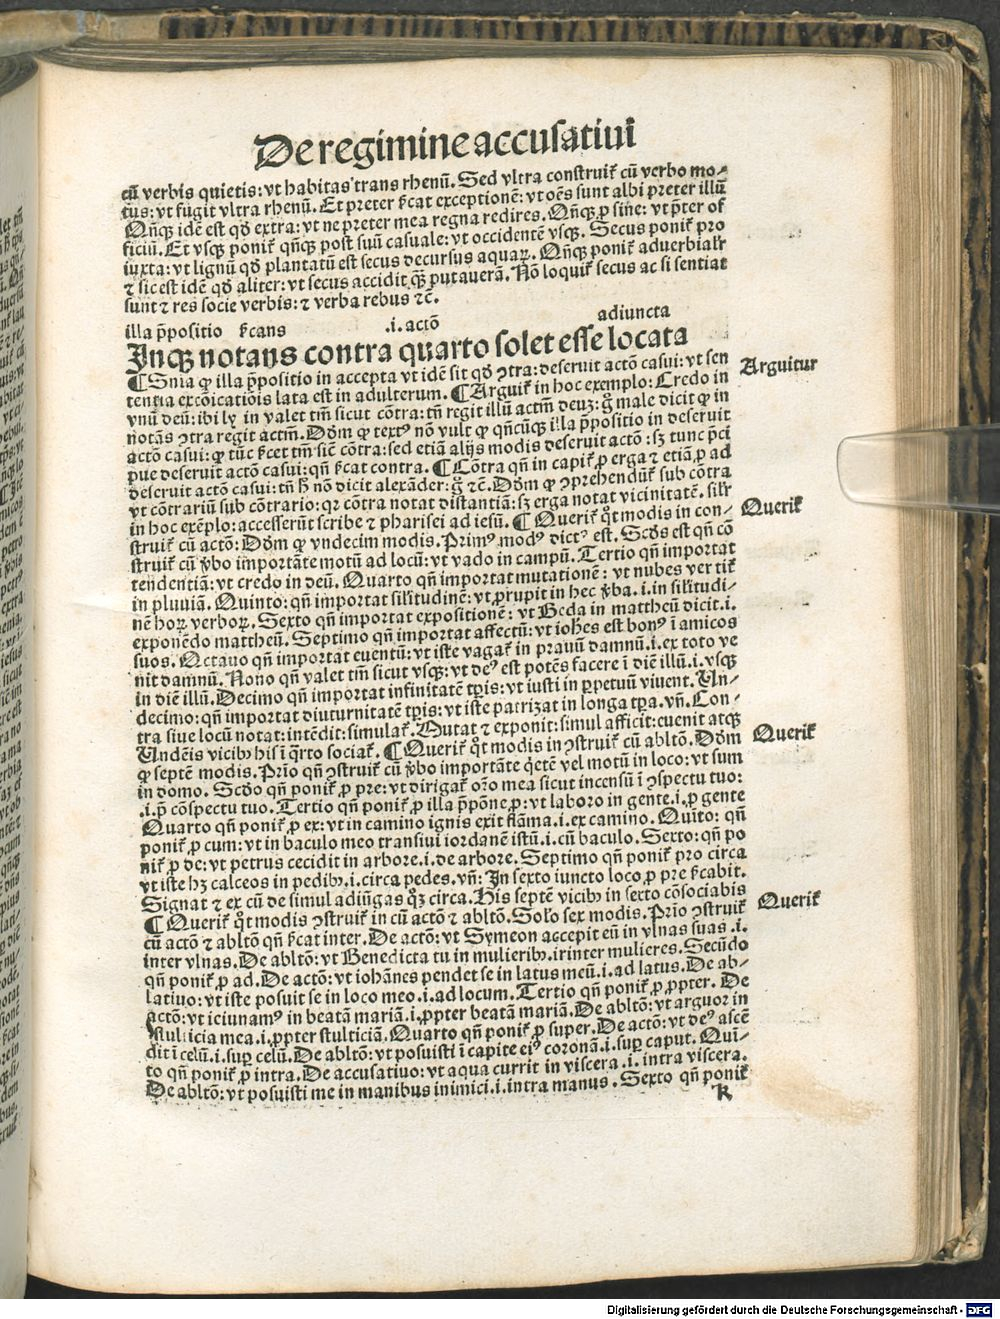 De regimine accusatiui
cū verbis quietis: vt habitas trans rhenū. Sed vltra construiť cū verbo mo-
tus: vt fugit vltra rhenū. Et preter ſ̃cat exceptionē: vt oēs sunt albi preter illū
Qñqꝫ idē est qd̕ extra: vt ne preter mea regna redires. Qñqꝫ ꝓ sine: vt p̄ter of
ficiū. Et vsqꝫ poniť qñqꝫ post suū casuale: vt occidentē vsqꝫ. Secus poniť pro
iuxta: vt lignū qd̕ plantatū est secus decursus aquaꝝ. Qñqꝫ poniť aduerbialr̄
⁊ sic est idē qd̕ aliter: vt secus accidit qꝫ̃ putauerā. Nō loquiť secus ac si sentiat
sunt ⁊ res socie verbis: ⁊ verba rebus ⁊c̄.
illa p̄positio ſ̃cans .i. actō adiuncta
Inqꝫ notans contra quarto solet esse locata
¶ Snīa ꝙ illa p̄positio in accepta vt idē sit qd̕ ꝯtra: deseruit actō casui: vt sen
Arguitur
tentia excōicatiōis lata est in adulterum. ¶ Arguiť in hoc exemplo: Credo in
vnū deū: ibi ly in valet tm̄ sicut cōtra: tn̄ regit illū actm̄ deuꝫ: g̊ male dicit ꝙ in
notās ꝯtra regit actm̄. Dōm ꝙ textꝰ nō vult ꝙ qn̄cūqꝫ illa p̄positio in deseruit
actō casui: ꝙ tūc ſ̃cet tm̄ siē cōtra: sed etiā alijs modis deseruit actō: sꝫ tunc p̄ci
pue deseruit actō casui: qn̄ ſ̃cat contra. ¶ Cōtra qn̄ in capiť ꝓ erga ⁊ etiā ꝓ ad
deseruit actō casui: tn̄ h̄ nō dicit alexāder: g̊ ⁊c̄. Dōm ꝙ ꝯprehendūť sub cōtra
vt cōtrariū sub cōtrario: qꝛ cōtra notat distantiā: sꝫ erga notat vicinitatē. silr̄
in hoc exēplo: accesserūt scribe ⁊ pharisei ad iesū. ¶ Queriť qͦt modis in con-
Queriť
struiť cū actō: Dōm ꝙ vndecim modis. Primꝰ modꝰ dictꝰ est. Scd̕s est qn̄ cō
struiť cū v̄bo importāte motū ad locū: vt vado in campū. Tertio qn̄ importat
tendentiā: vt credo in deū. Quarto qn̄ importat mutationē: vt nubes vertiť
in pluuiā. Quinto: qn̄ importat sil'itudinē: vt prupit in hec v̄ba .i. in sil'itudi-
nē hoꝝ verboꝝ. Sexto qn̄ importat expositionē: vt Beda in mattheū dicit .i.
exponēdo mattheū. Septimo qn̄ importat affectū: vt ioh̄es est bonꝰ ī amicos
suos. Octauo qn̄ importat euentū: vt iste vagať in prauū damnū .i. ex toto ve
nit damnū. Nono qn̄ valet tm̄ sicut vsqꝫ: vt deꝰ est potēs facere ī diē illū .i. vsqꝫ
in diē illū. Decimo qn̄ importat infinitatē tꝑis: vt iusti in ꝑpetuū viuent. Un-
decimo: qn̄ importat diuturnitatē tꝑis: vt iste patrizat in longa tꝑa. vn̄. Con-
tra siue locū notat: intēdit: simulať. Mutat ⁊ exponit: simul afficit: euenit atqꝫ
Undēis vicibꝰ his ī qͣrto sociať. ¶ Queriť qͦt modis in ꝯstruiť cū abltō. Dōm
Queriť
ꝙ septē modis. Prīo qn̄ ꝯstruiť cū v̄bo importāte qͥetē vel motū in loco: vt sum
in domo. Scd̕o qn̄ poniť ꝓ pre: vt dirigať or̄o mea sicut incensū ī ꝯspectu tuo:
.i. p̄ cōspectu tuo. Tertio qn̄ poniť ꝓ illa p̄pōne ꝑ: vt laboro in gente .i. ꝑ gente
Quarto qn̄ poniť ꝓ ex: vt in camino ignis exit flāma .i. ex camino. Quīto: qn̄
poniť ꝓ cum: vt in baculo meo transiui iordanē istū .i. cū baculo. Sexto: qn̄ po
niť ꝓ de: vt petrus cecidit in arbore .i. de arbore. Septimo qn̄ poniť pro circa
vt iste hꝫ calceos in pedibꝰ .i. circa pedes. vn̄: In sexto iuncto loco ꝓ pre ſ̃cabit.
Signat ⁊ ex cū de simul adiūgas qͦꝫ circa. His septē vicibꝰ in sexto cōsociabis
¶ Queriť qͦt modis ꝯstruiť in cū actō ⁊ abltō. Solō sex modis. Prīo ꝯstruiť
Queriť
cū actō ⁊ abltō qn̄ ſ̃cat inter. De actō: vt Symeon accepit eū in vlnas suas .i.
inter vlnas. De abltō: vt Benedicta tu in mulieribꝰ .i. inter mulieres. Secūdo
qn̄ poniť ꝓ ad. De actō: vt iohānes pendet se in latus meū .i. ad latus. De ab-
latiuo: vt iste posuit se in loco meo .i. ad locum. Tertio qn̄ poniť ꝓ ꝓpter. De
actō: vt iciunamꝰ in beatā mariā .i. ꝓpter beatā mariā. De abltō: vt arguor in
stulticia mea .i. ꝓpter stulticiā. Quarto qn̄ poniť ꝓ super. De actō: vt deꝰ ascē
dit ī celū .i. suꝑ celū. De abltō: vt posuisti ī capite eiꝰ coronā .i. suꝑ caput. Quī-
to qn̄ poniť ꝓ intra. De accusatiuo: vt aqua currit in viscera .i. intra viscera.
De abltō: vt posuisti me in manibus inimici .i. intra manus. Sexto qn̄ poniť
k
Digitalisierung gefördert durch die Deutsche Forschungsgemeinschaft - DFG